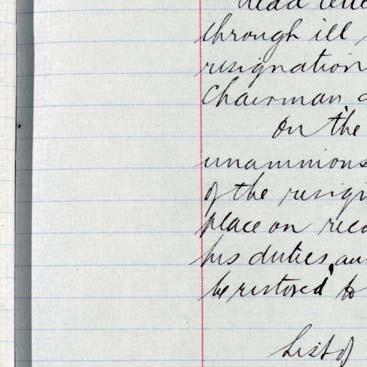 Read lette
through ill
resignation
Chairman
On the
unammious
of the resign
place on reco
his duties, an
be restored to
List of